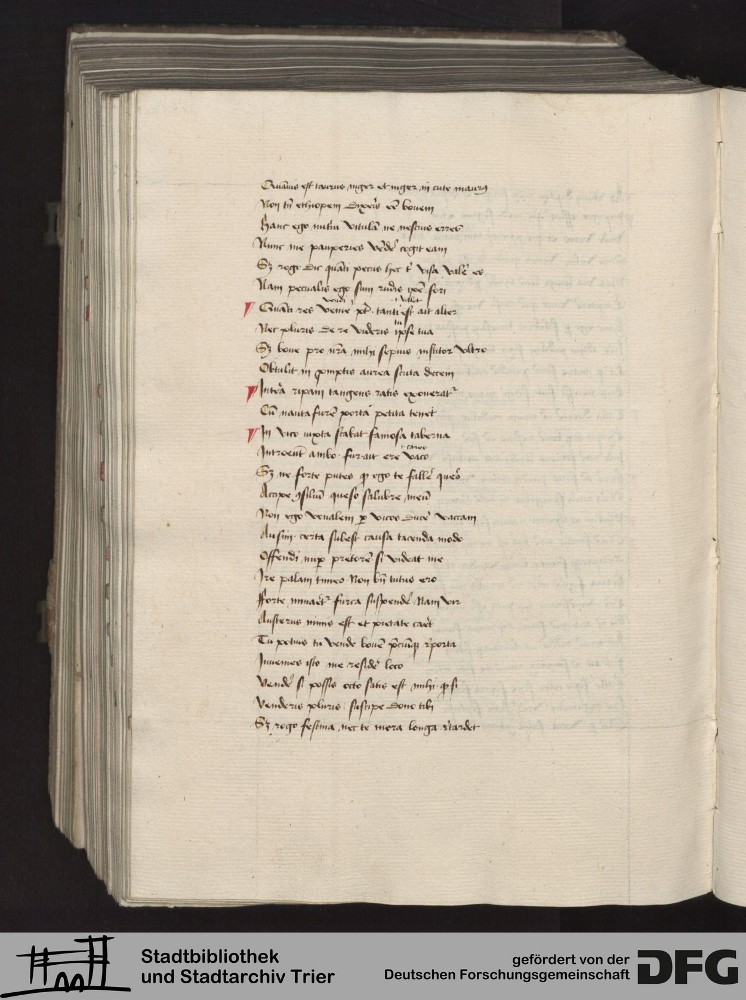 Quāuis est taurus niger et niger in cute maurus
Non tn̄ ethiopem dixeris eē bouem
Hanc ego nullū vitulā ne nescius erres
Nunc me pauperies vēdē cogit eam
Sꝫ rogo dic quāti pecus hec t' visa valē es
Nam pecualis ego sum rudis ipē fori
vendi valet
Quāti res venue pt' tanti est ait alter
tu
Nec pluris de re videris ipse tua
Sꝫ boue pro nr̄a mihi sepius institor vltro
Obtulit in ꝓmptis aurea scuta decem
Intēa ripam tangens ratis exoneratur
Cū nauta furē portā petita tenet
In vico iuxta stabat famosa taberna
careo
Introeūt ambo fur ait ere vaco
Sꝫ ne forte putes ꝙ ego te fallē quero
Accipe ꝯsiliū queso salubre meū
Non ego venalem ꝑ vicos ducē vaccam
Ausim certa subest causa tacenda modo
Offendi nuꝑ pretorē si videat me
Ire palam timeo non bn̄ tutus ero
Forte minaret' furca suspendē nam vir
Austerus nimis est et pietate caret
Tu potius tu vende bouē p̄ciūqꝫ reporta
Inuenies isto me residē loco
Vendē si possis octo satis est mihi ꝙ si
Venderis pluris suscipe dono tibi
Sꝫ rogo festina nec te mora longa retardet
Stadtbibliothek
und Stadtarchiv Trier
gefördert von der
Deutschen Forschungsgemeinschaft
DFG